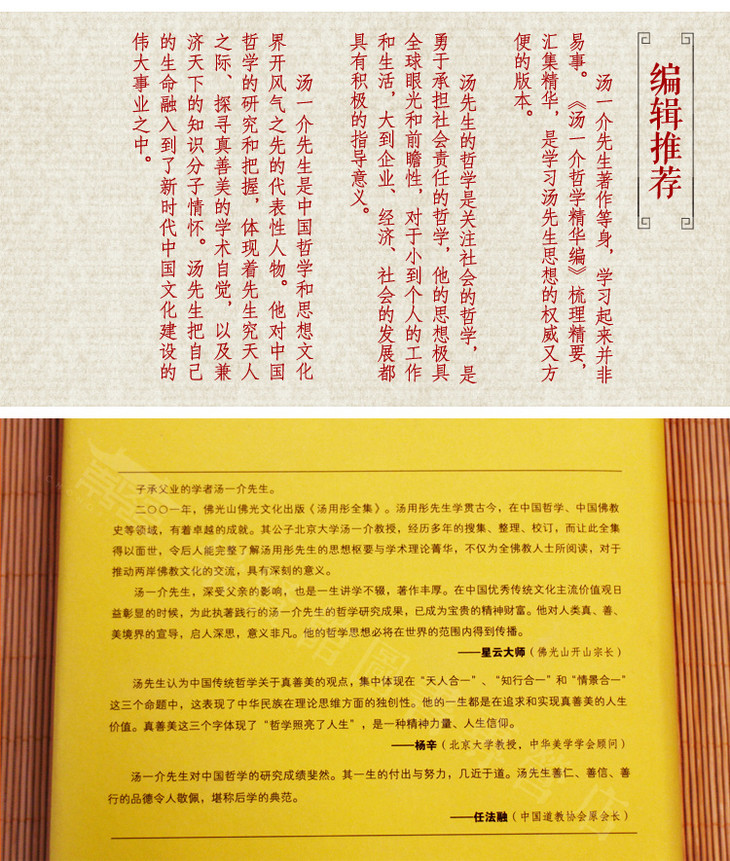 编辑推荐
汤一介先生著作等身，学习起来并非
易事。《汤一介哲学精华编》梳理精要，
汇集精华，是学习汤先生思想的权威又方
便的版本。
汤先生的哲学是关注社会的哲学，是
勇于承担社会责任的哲学，他的思想极具
全球眼光和前瞻性，对于小到个人的工作
和生活，大到企业、经济、社会的发展都
具有积极的指导意义。
汤一介先生是中国哲学和思想文化
界开风气之先的代表性人物。他对中国
哲学的研究和把握，体现着先生究天人
之际、探寻真善美的学术自觉，以及兼
济天下的知识分子情怀。汤先生把自己
的生命融入到了新时代中国文化建设的
伟大事业之中。
子承父业的学者汤一介先生。
二〇〇一年，佛光山佛光文化出版《汤用彤全集》。汤用彤先生学贯古今，在中国哲学、中国佛教
史等领域，有着卓越的成就。其公子北京大学汤一介教授，经历多年的搜集、整理、校订，而让此全集
得以面世，令后人能完整了解汤用彤先生的思想枢要与学术理论菁华，不仅为全佛教人士所阅读，对于
推动两岸佛教文化的交流，具有深刻的意义。
汤一介先生，深受父亲的影响，也是一生讲学不辍，著作丰厚。在中国优秀传统文化主流价值观日
益彰显的时候，为此执著践行的汤一介先生的哲学研究成果，已成为宝贵的精神财富。他对人类真、善、
美境界的宣导，启人深思，意义非凡。他的哲学思想必将在世界的范围内得到传播。
——星云大师（佛光山开山宗长）
汤先生认为中国传统哲学关于真善美的观点，集中体现在“天人合一”、“知行合一”和“情景合一”
这三个命题中，这表现了中华民族在理论思维方面的独创性。他的一生都是在追求和实现真善美的人生
价值。真善美这三个字体现了“哲学照亮了人生”，是一种精神力量、人生信仰。
——杨辛（北京大学教授，中华美学学会顾问）
汤一介先生对中国哲学的研究成绩斐然。其一生的付出与努力，几近于道。汤先生善仁、善信、善
行的品德令人敬佩，堪称后学的典范。
——任法融（中国道教协会原会长）